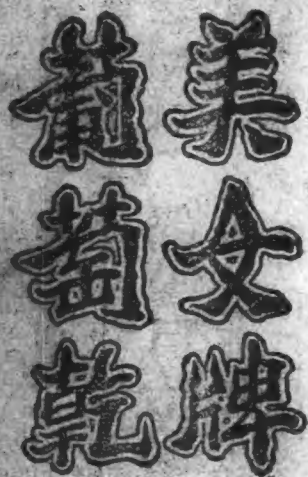 美女牌
葡萄乾